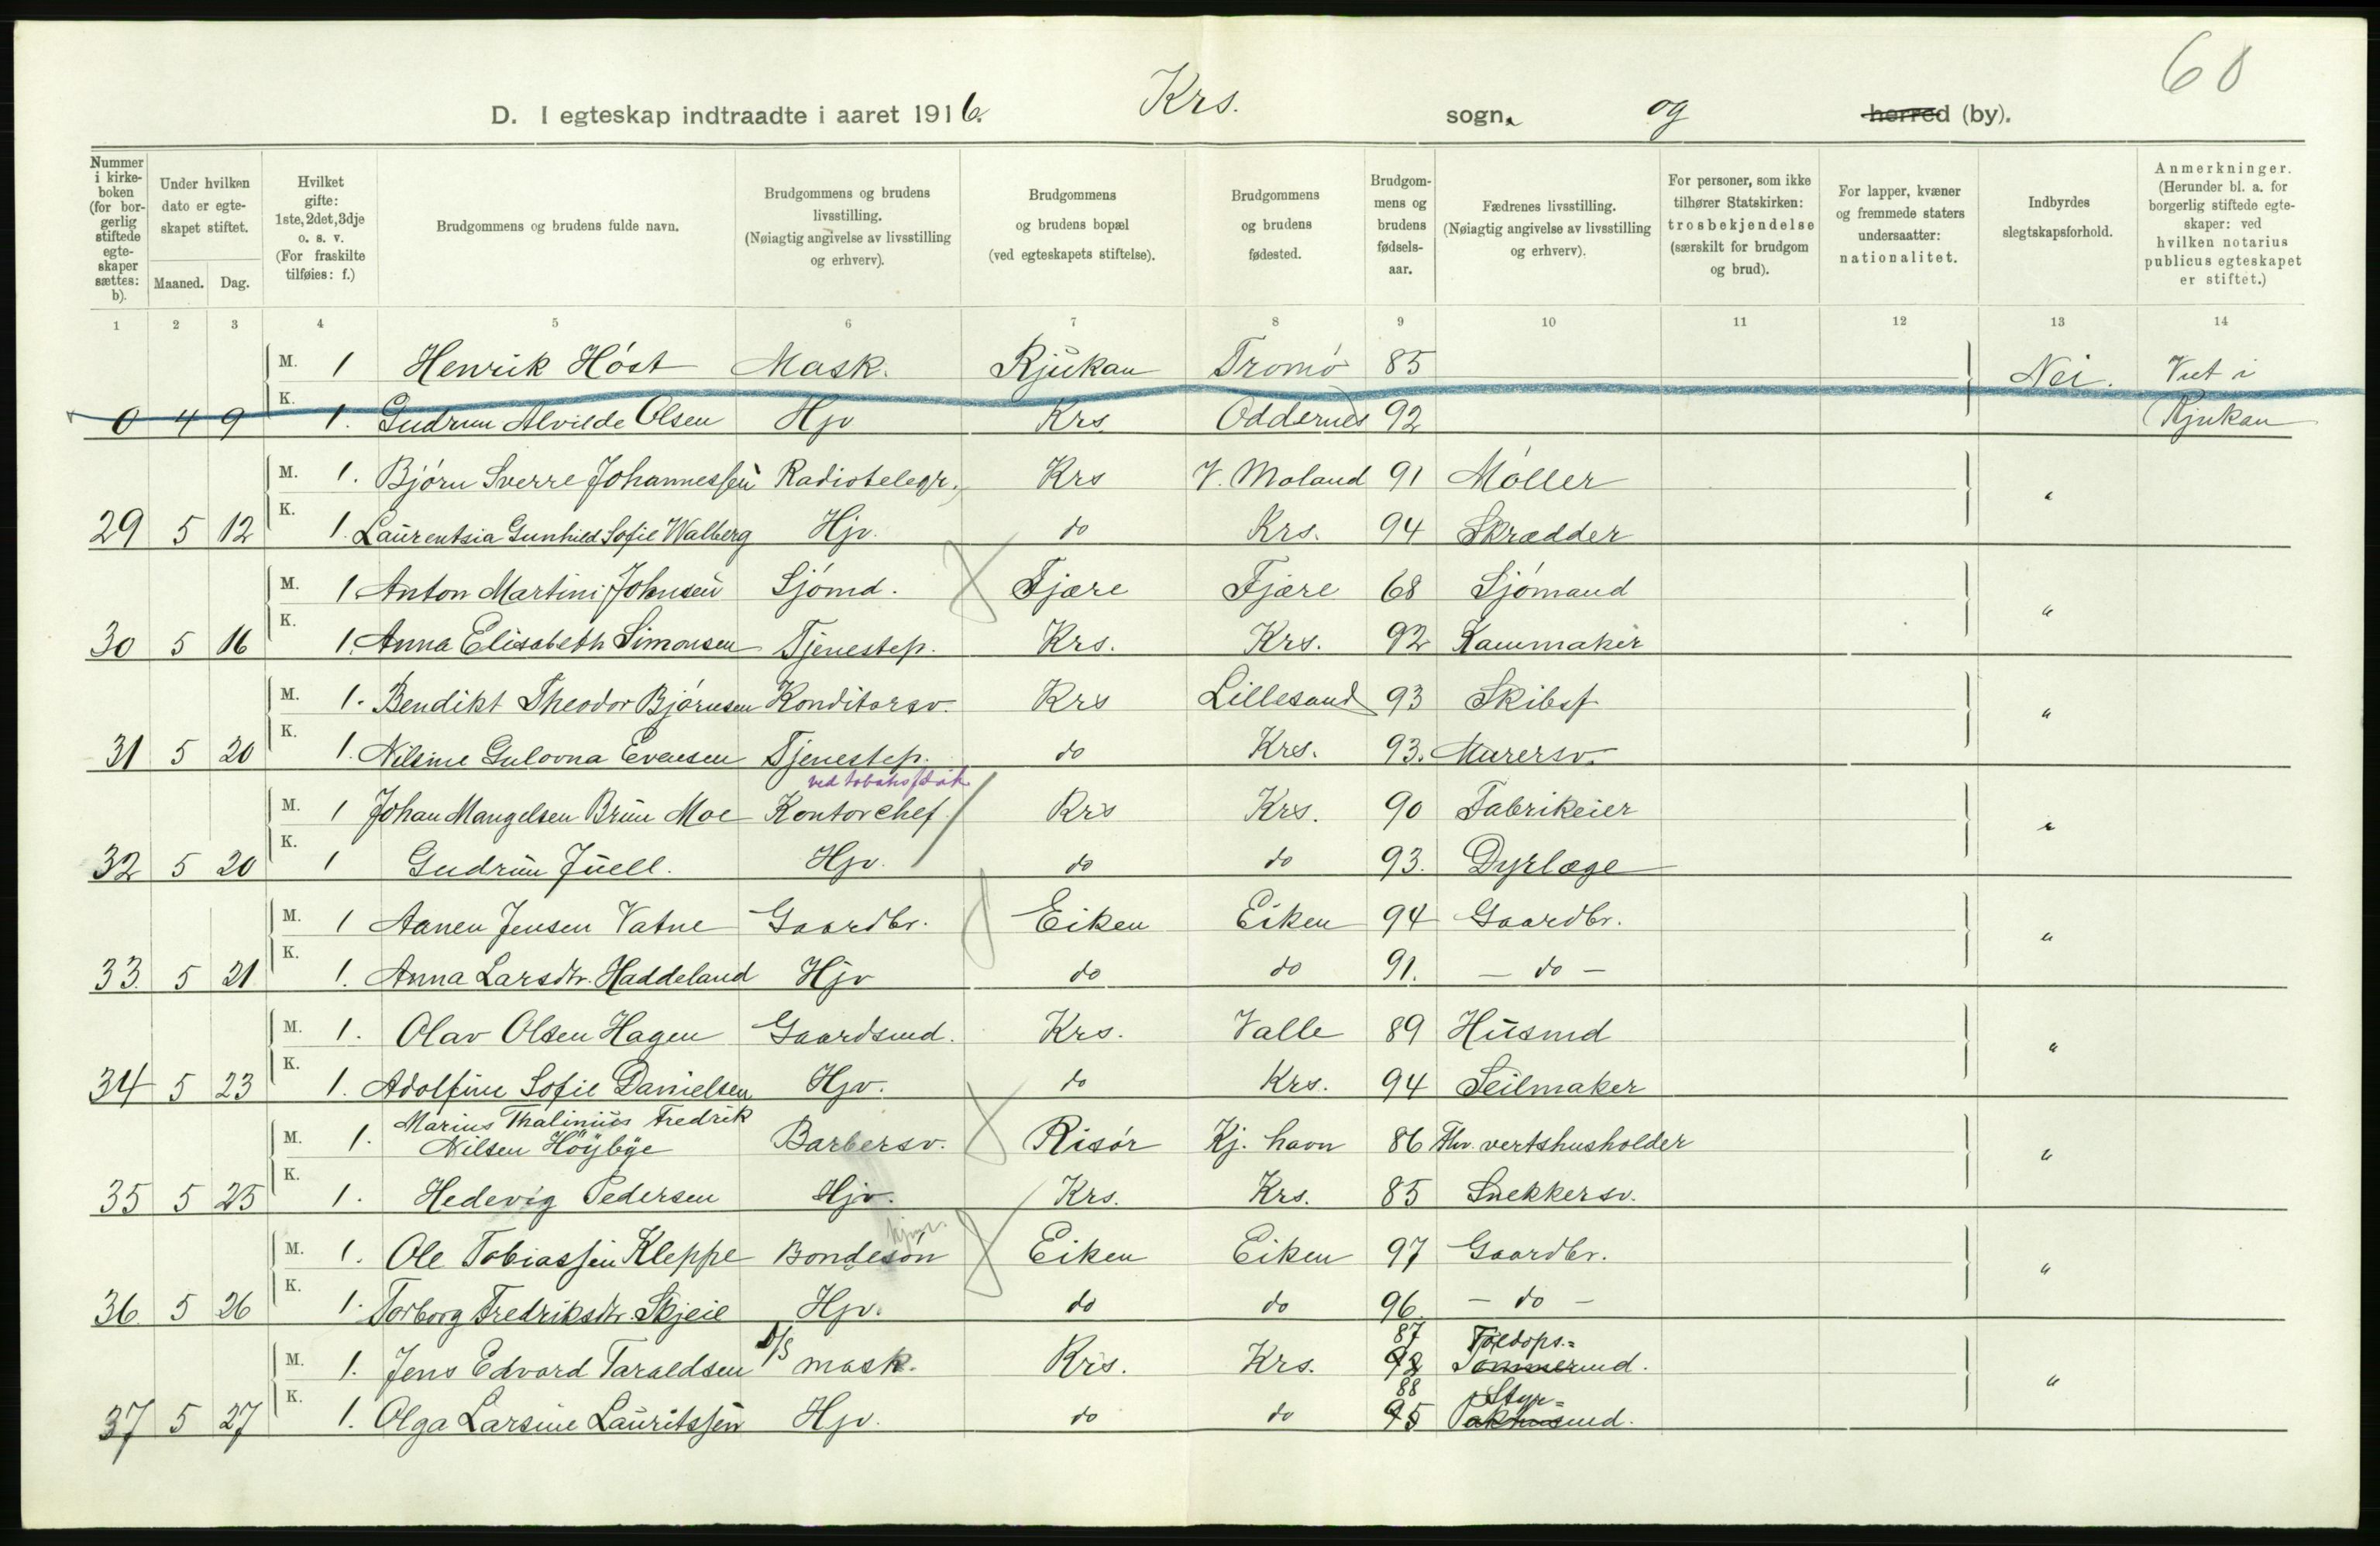 60
D. I egteskap indtraadte i aaret 1916. Krs. sogn og herred (by).
Nummer i kirke- boken (for bor- gerlig stiftede egte- skaper sættes: b).
Under hvilken dato er egte- skapet stiftet.
Maaned. Dag.
Hvilket gifte: 1ste, 2det, 3dje o. s. v. (For fraskilte tilføies: f.)
Brudgommens og brudens fulde navn.
Brudgommens og brudens livsstilling. (Nøiagtig angivelse av livsstilling og erhverv).
Brudgommens og brudens bopæl (ved egteskapets stiftelse).
Brudgommens og brudens fødested.
Brudgom- mens og brudens fødsels- aar.
Fædrenes livsstilling. (Nøiagtig angivelse av livsstilling og erhverv).
For personer, som ikke tilhører Statskirken: trosbekjendelse (særskilt for brudgom og brud).
For lapper, kvæner og fremmede staters undersaatter: nationalitet.
Indbyrdes slegtskapsforhold.
Anmerkninger. (Herunder bl. a. for borgerlig stiftede egte- skaper: ved hvilken notarius publicus egteskapet er stiftet.)
1 2 3 4 5 6 7 8 9 10 11 12 13 14
M. 1 Henrik Höst Mask. Rjukan Tromö 85 Nei. Viet i
0 4 9 K. 1. Gudrun Alvilde Olsen Hjv Krs. Oddernes 92 Rjukan
M. 1. Björn Sverre Johannessen Radiotelegr. Krs V. Moland 91 Möller "
29 5 12 K. 1. Laurentsia Gunhild Sofie Walberg Hjv. do Krs. 94 Skrædder
M. 1 Anton Martini Johnsen Sjömd. Fjære Fjære 68 Sjömand "
30 5 16 K. 1. Anna Elisabeth Simonsen Tjenestep. Krs. Krs. 92 Kammaker
M. 1. Bendikt Theodor Björnsen Konditorsv. Krs Lillesand 93 Skibsf "
31 5 20 K. 1. Nilsine Gulovna Evensen Tjenestep. do Krs. 93. Murersv.
ved tobaksfabk
M. 1 Johan Mangelsen Brun Moe Kontorchef Krs Krs. 90 Fabrikeier "
32 5 20 K. 1 Gudrun Juell. Hjv. do do 93. Dyrlæge
M. 1 Aanen Jensen Vatne Gaardbr. Eiken Eiken 94 Gaardbr. "
33. 5 21 K. 1. Anna Larsdtr. Haddeland Hjv do do 91. - do -
M. 1. Olav Olsen Hagen Gaardsmd. Krs. Valle 89 Husmd "
34 5 23 K. 1. Adolfine Sofie Danielsen Hjv. do Krs. 94 Seilmaker
Marius Thalinius Fredrik
M. 1. Nilsen Höÿbÿe Barbersv. Risör Kj. havn 86 Fhv. vertshusholder "
35 5 25 K. 1. Hedevig Pedersen Hjv. Krs. Krs. 85 Snekkersv.
M. 1. Ole Tobiassen Kleppe Bondesön Eiken Eiken 97 Gaardbr. "
36 5 26 K. 1. Torborg Fredriksdtr. Skjeie Hjv. do do 96. - do -
87 Toldops.=
M. 1. Jens Edvard Taraldsen D/S mask. Krs. Krs. 92 Tømmermd. "
88 Styr=
37 5 27 K. 1. Olga Larsine Lauritssen Hjv. do do 95 Pakhusmd.